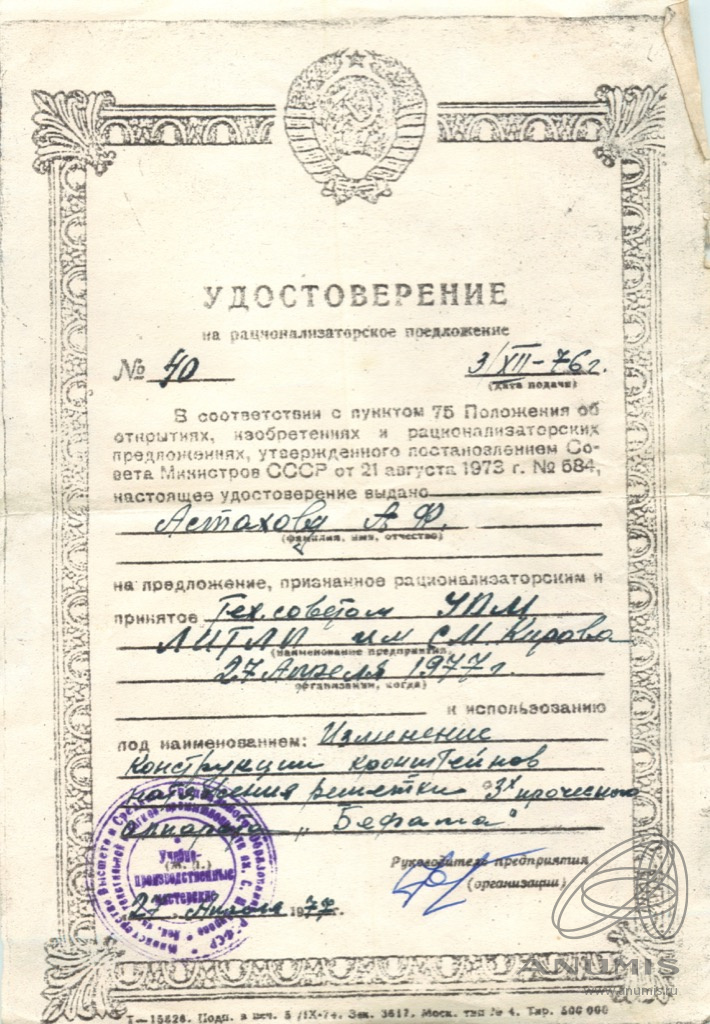 УДОСТОВЕРЕНИЕ
на рационализаторское предложение
№ 40 3/XII-76 г.
(дата подачи)
В соответствии с пунктом 75 Положения об
открытиях, изобретениях и рационализаторских
предложениях, утвержденного постановлением Со-
вета Министров СССР от 21 августа 1973 г. № 584,
настоящее удостоверение выдано
Астахову А Ф.
(фамилия, имя, отчество)
на предложение, признанное рационализаторским и
принятое Тех.советом УПМ
ЛИТЛП им СМ Кирова
(наименование предприятия,
27 Апреля 1977 г.
организации, когда)
к использованию
под наименованием: Изменение
конструкции кронштейнов
натяжения решетки 3х прочесного
аппарата „Бефама"
Руководитель предприятия
(организации)
(М. П.)
Учебно-
производственные
мастерские
27 Апреля 1977 г.
Т—15626. Подп. в печ. 5/IX-74. Зак. 3617. Моск. тип № 4. Тир. 500 000
ANUMIS
www.anumis.ru